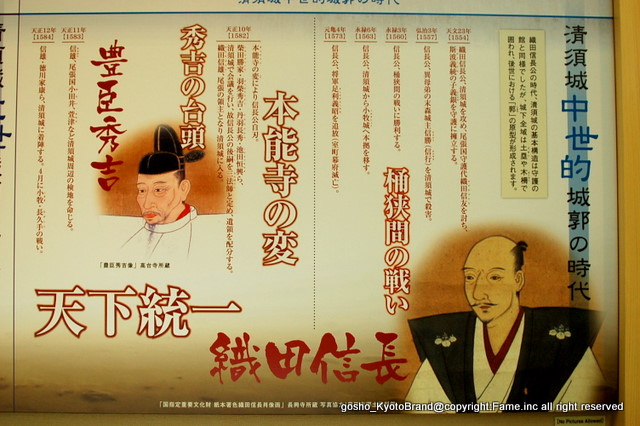 清須城中世的城郭の時代
清須城中世的城郭の時代
織田信長公の時代、清須城の基本構造は守護の
館と同様でしたが、城下全域は土塁や木柵で
囲われ、後世における「郭」の原型が形成されます。
天文23年
【1554】
織田信長公、清須城を攻め、尾張国守護代織田信友を討ち、
斯波義統の子義銀を守護に擁立する。
弘治3年
【1557】
信長公、異母弟の末森城主信勝(信行)を清須城で殺害。
永禄3年
【1560】
信長公、桶狭間の戦いに勝利する。
永禄6年
【1563】
信長公、清須城から小牧城へ本拠を移す。
元亀4年
【1573】
信長公、将軍足利義昭を追放(室町幕府滅亡)。
桶狭間の戦い
本能寺の変
天正10年
【1582】
本能寺の変により信長公自刃。
柴田勝家・羽柴秀吉・丹羽長秀・池田恒興ら、
清須城で会議を行い、故信長公の後嗣を三法師と定め、遺領を配分する。
織田信雄、尾張の領主となり清須城に入る。
秀吉の台頭
天正11年
【1583】
信雄、尾張国小田井、萱津など清須城周辺の検地を命じる。
天正12年
【1584】
信雄・徳川家康ら、清須城に着陣する。4月に小牧・長久手の戦い。
豊臣秀吉
「豊臣秀吉像」高台寺所蔵
天下統一
織田信長
「国指定重要文化財 紙本著色織田信長公画」長興寺所蔵
gosho_KyotoBrand@copyright:Fame.inc all right reserved
(No Pictures Allowed)